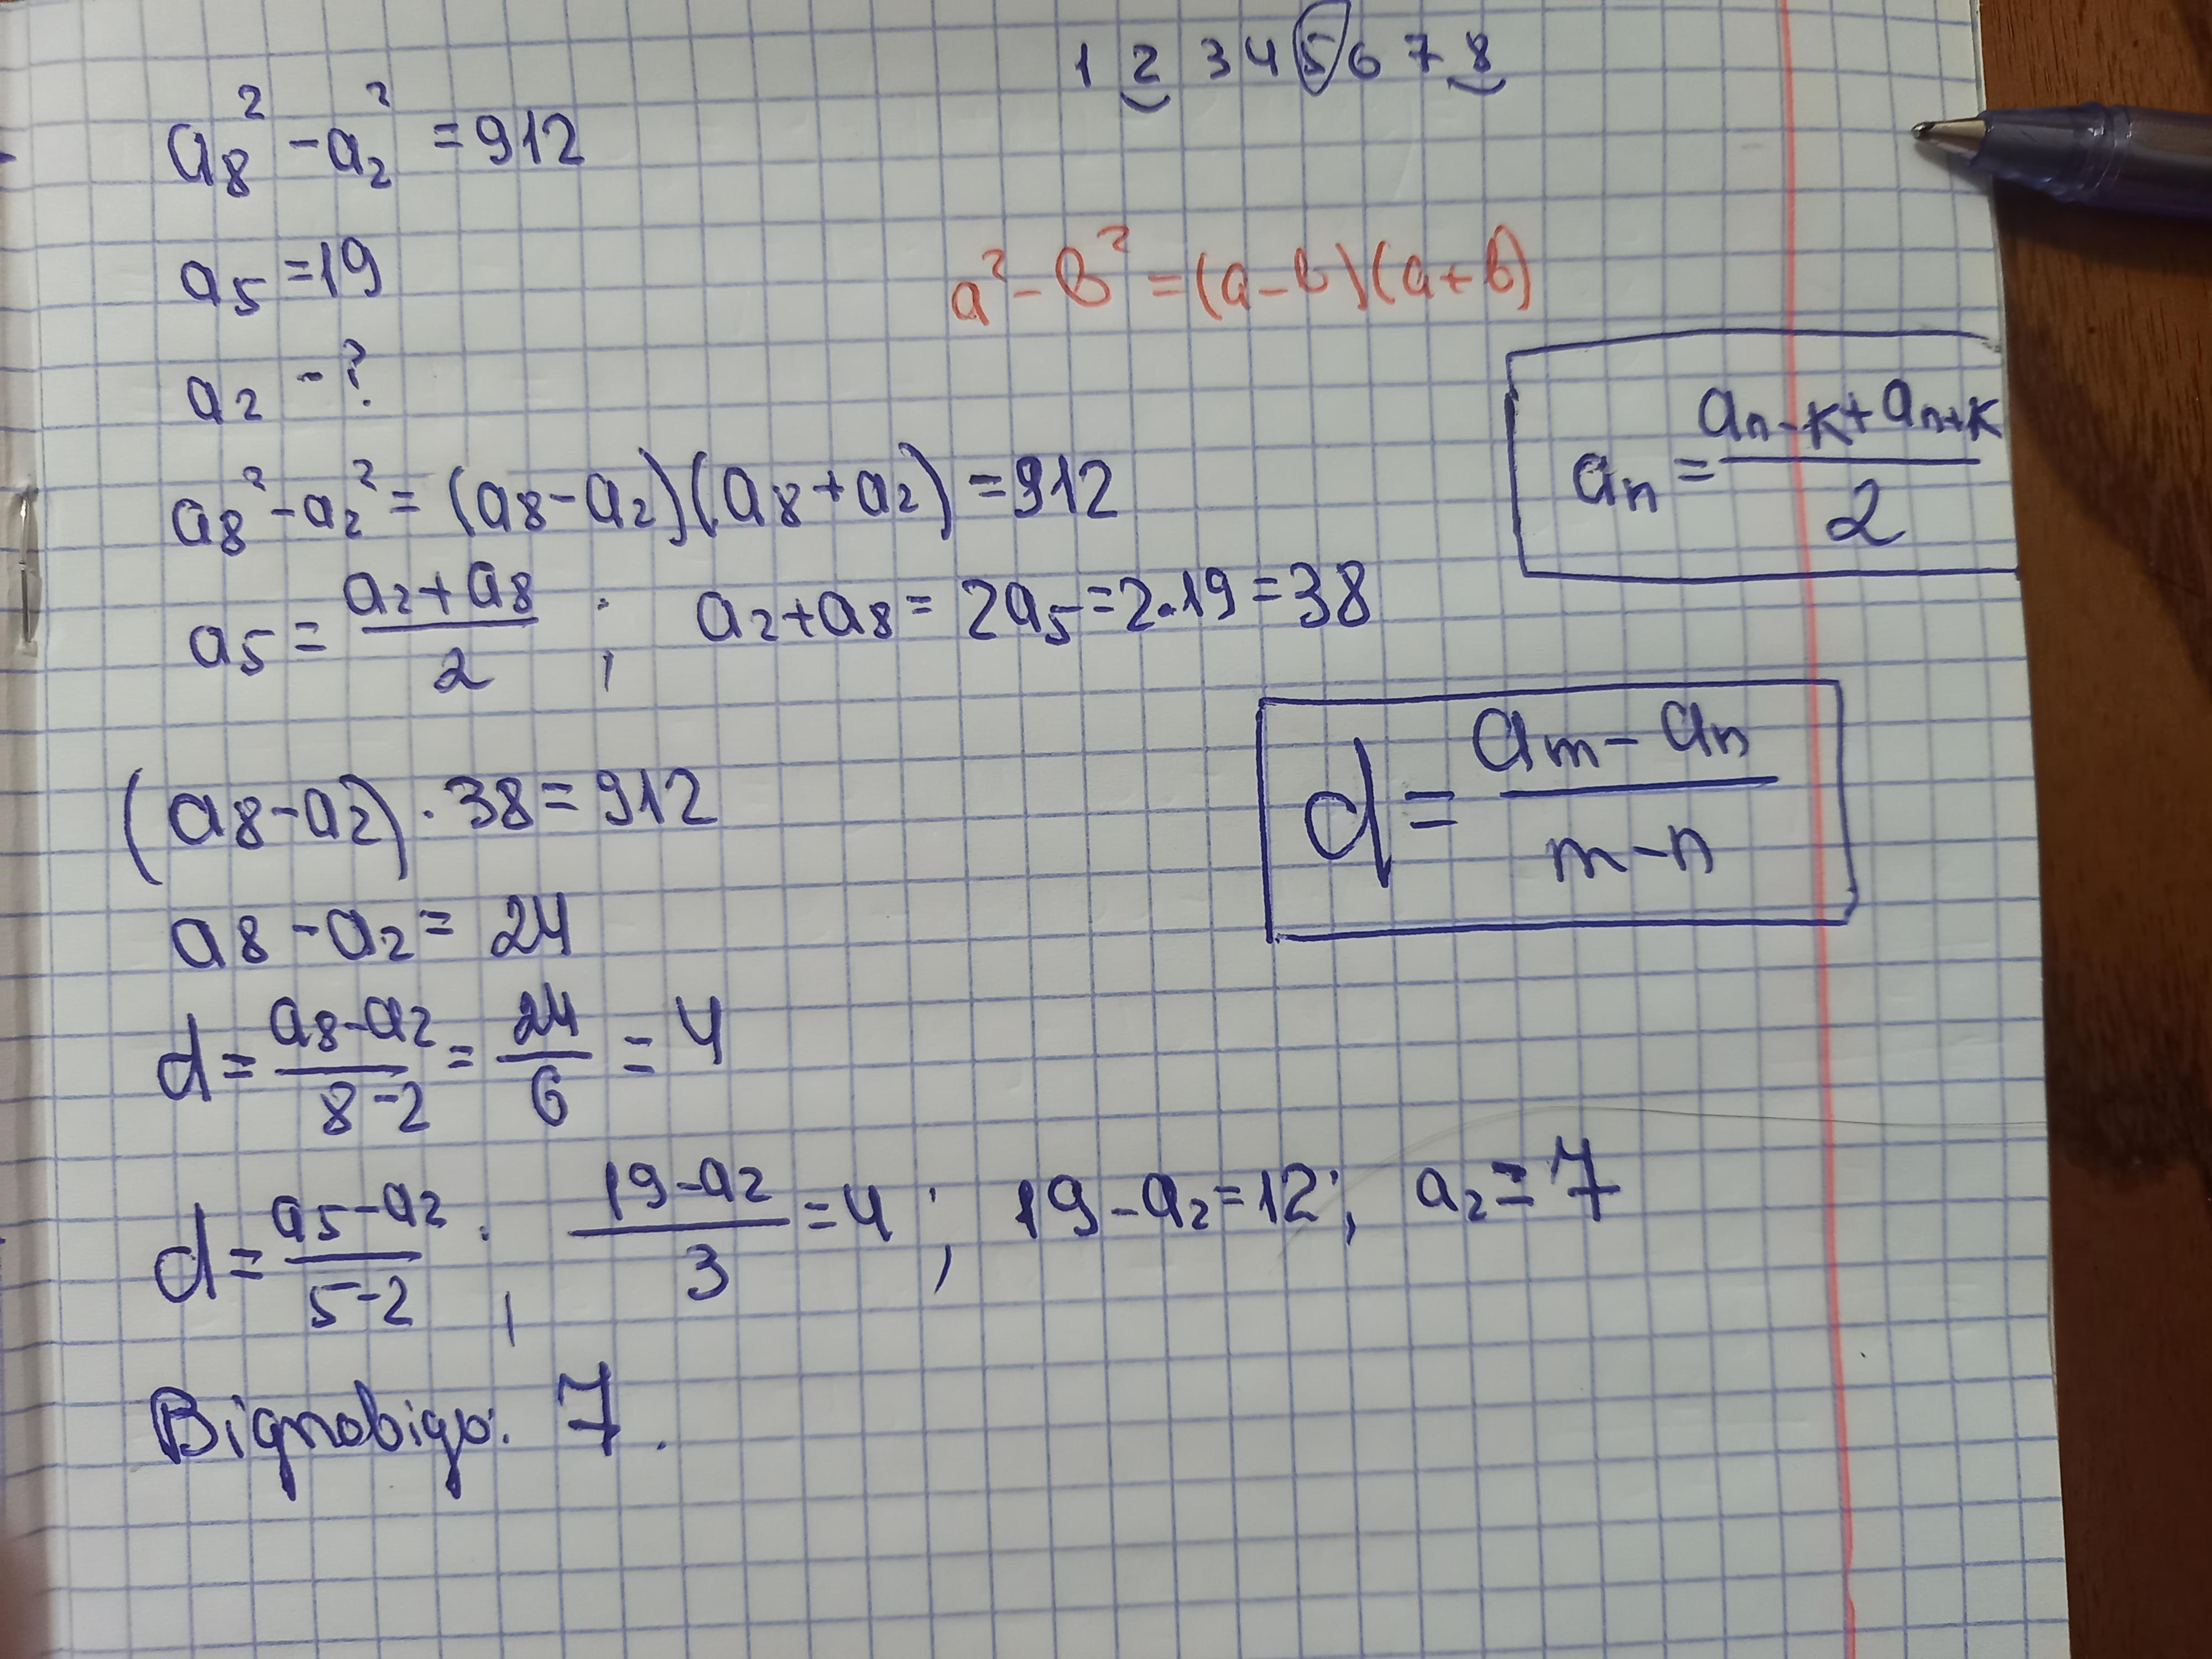 1 2 3 4 5 6 7 8
a₈² - a₂² = 912
a₅ = 19
a² - b² = (a - b)(a + b)
a₂ - ?
aₙ = (aₙ₋ₖ + aₙ₊ₖ) / 2
a₈² - a₂² = (a₈ - a₂)(a₈ + a₂) = 912
a₅ = (a₂ + a₈) / 2 ; a₂ + a₈ = 2a₅ = 2 · 19 = 38
d = (aₘ - aₙ) / (m - n)
(a₈ - a₂) · 38 = 912
a₈ - a₂ = 24
d = (a₈ - a₂) / (8 - 2) = 24 / 6 = 4
d = (a₅ - a₂) / (5 - 2) ; (19 - a₂) / 3 = 4 ; 19 - a₂ = 12 ; a₂ = 7
Відповідь: 7.